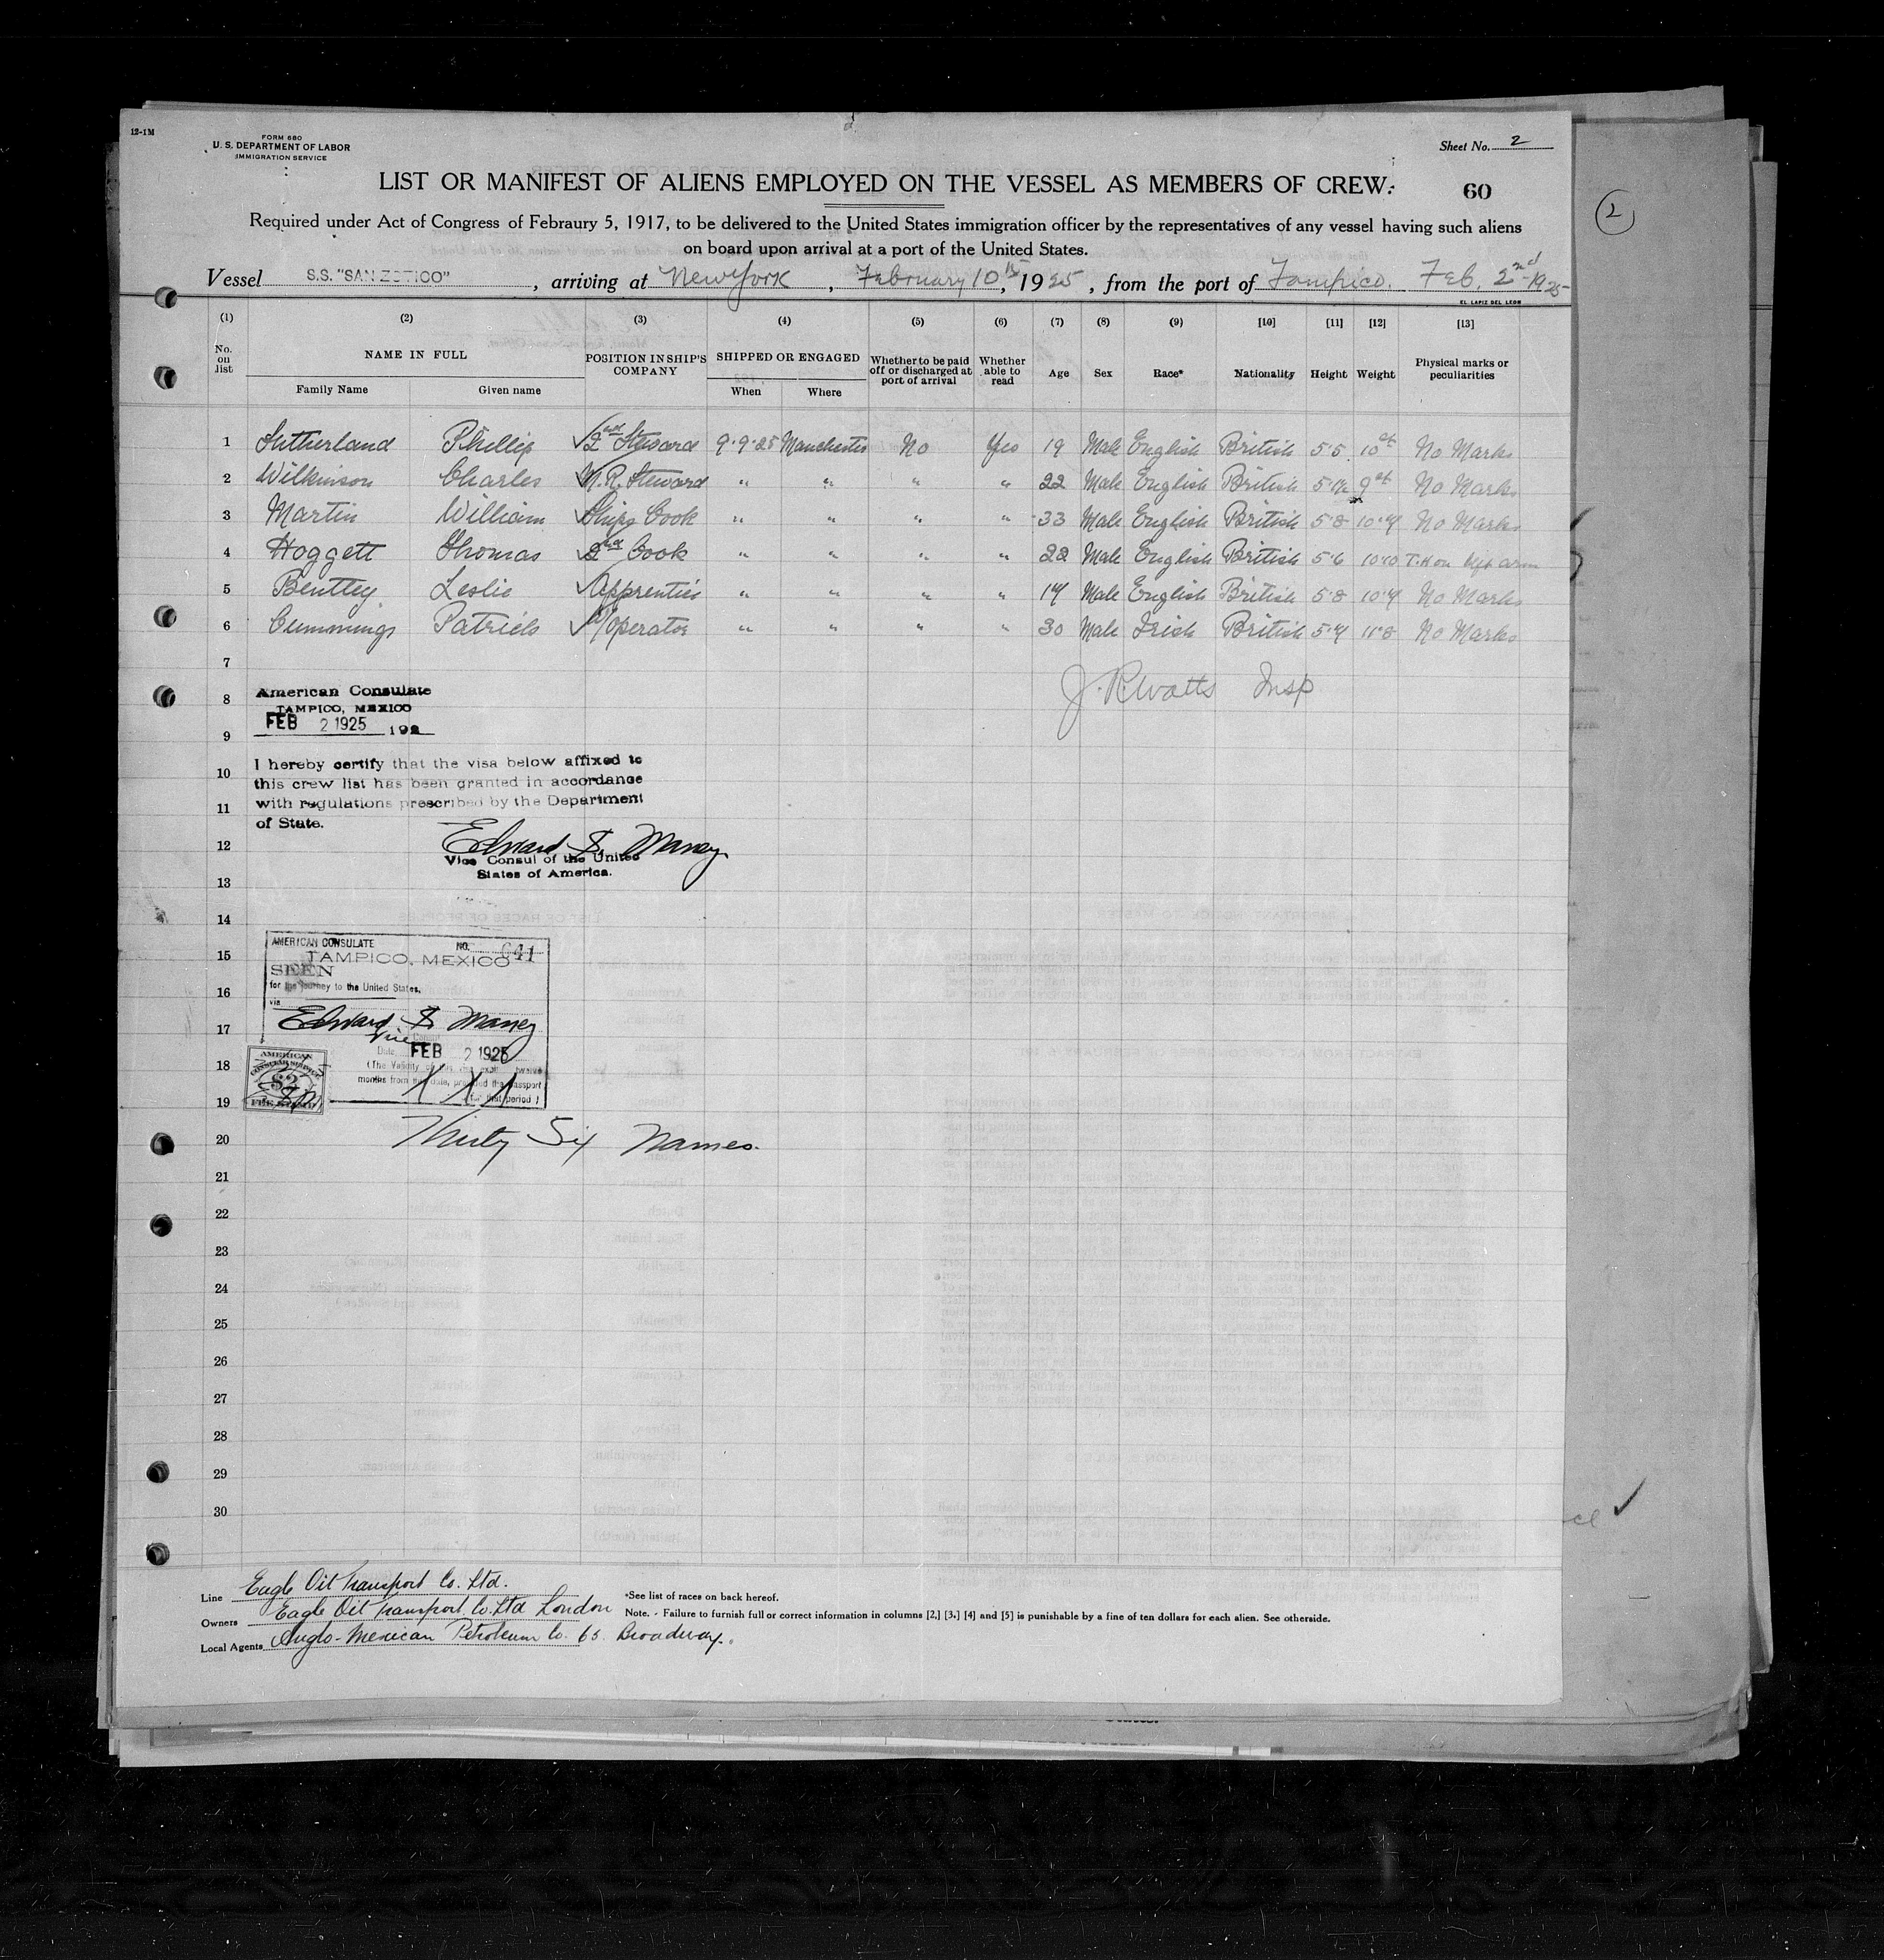 12-1M
FORM 680
U. S. DEPARTMENT OF LABOR
IMMIGRATION SERVICE
Sheet No. 2
LIST OR MANIFEST OF ALIENS EMPLOYED ON THE VESSEL AS MEMBERS OF CREW.
60
2
Required under Act of Congress of Febraury 5, 1917, to be delivered to the United States immigration officer by the representatives of any vessel having such aliens
on board upon arrival at a port of the United States.
Vessel S.S. "SAN ZOTICO", arriving at New York, February 10th, 1925, from the port of Tampico. Feb. 2nd 1925
EL LAPIZ DEL LEON
(1) (2) (3) (4) (5) (6) (7) (8) (9) [10] [11] [12] [13]
No. on list NAME IN FULL POSITION IN SHIP'S COMPANY SHIPPED OR ENGAGED Whether to be paid off or discharged at port of arrival Whether able to read Age Sex Race* Nationality Height Weight Physical marks or peculiarities
Family Name Given name When Where
1 Sutherland Phillip 2nd Steward 9.9.25 Manchester No Yes 19 Male English British 5.5 10st No Marks
2 Wilkinson Charles M.R. Steward " " " " 22 Male English British 9st No Marks
3 Martin William Ships Cook " " " " 33 Male English British 5.8 No Marks
4 Hoggett Thomas 2nd Cook " " " " 22 Male English British 5.6 10.10 left arm
5 Bentley Leslie Apprentice " " " " Male English British 5.8 No Marks
6 Cummings Patrick W/operator " " " " 30 Male Irish British 11.8 No Marks
7
J. R. Watts Insp
8 American Consulate
TAMPICO, MEXICO
FEB 2 1925 192
9
10 I hereby certify that the visa below affixed to
this crew list has been granted in accordance
11 with regulations prescribed by the Department
of State.
12 Edward S. Maney
Vice Consul of the United
States of America.
13
14
AMERICAN CONSULATE NO. 641
15 TAMPICO, MEXICO
SEEN
16 for the journey to the United States,
via
17 Edward S. Maney
Vice Consul
Date FEB 2 1925
18 (The Validity of this visa expires twelve
months from this date, provided the passport
for that period)
AMERICAN
CONSULAR SERVICE
$2
FEE STAMP
19
20 Thirty Six Names.
21
22
23
24
25
26
27
28
29
30
Line Eagle Oil Transport Co. Ltd.
Owners Eagle Oil Transport Co. Ltd London
Local Agents Anglo-Mexican Petroleum Co. 65. Broadway.
*See list of races on back hereof.
Note. - Failure to furnish full or correct information in columns [2,] [3,] [4] and [5] is punishable by a fine of ten dollars for each alien. See otherside.